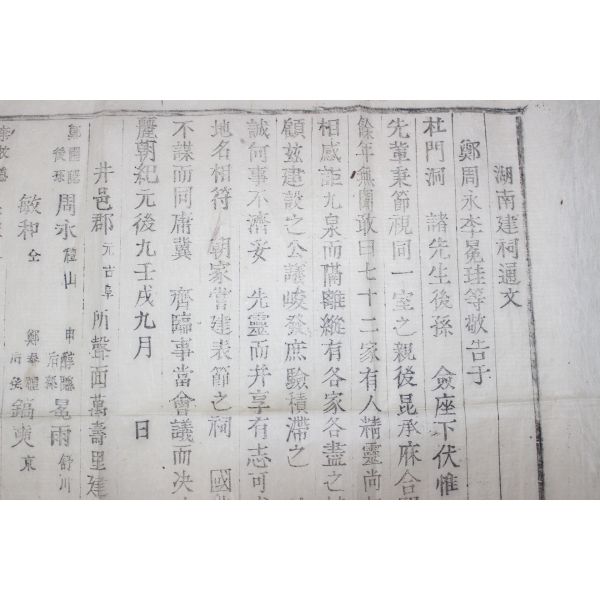 湖南建祠通文
鄭周永李冕珪等敬告于
杜門洞 諸先生後孫 僉座下伏惟
先輩秉節視同一室之親後昆承麻合
餘年無聞敢曰七十二家有人精靈尚
相感詎九泉而隔離縱有各家各盡之
顧玆建設之公議峻發庶驗積滯之
誠何事不濟妥 先靈而并享有志可
地名相符 朝家嘗建表節之祠 國
不謀而同庸冀 齊臨事當會議而决
麗朝紀元後九壬戌九月 日
井邑郡元古阜所聲面萬壽里建
鄭圃隱後孫 周永 霞山 申醇隱后孫 冕雨 舒川
敏和 仝 鄭 后孫 鎬奭 東
李